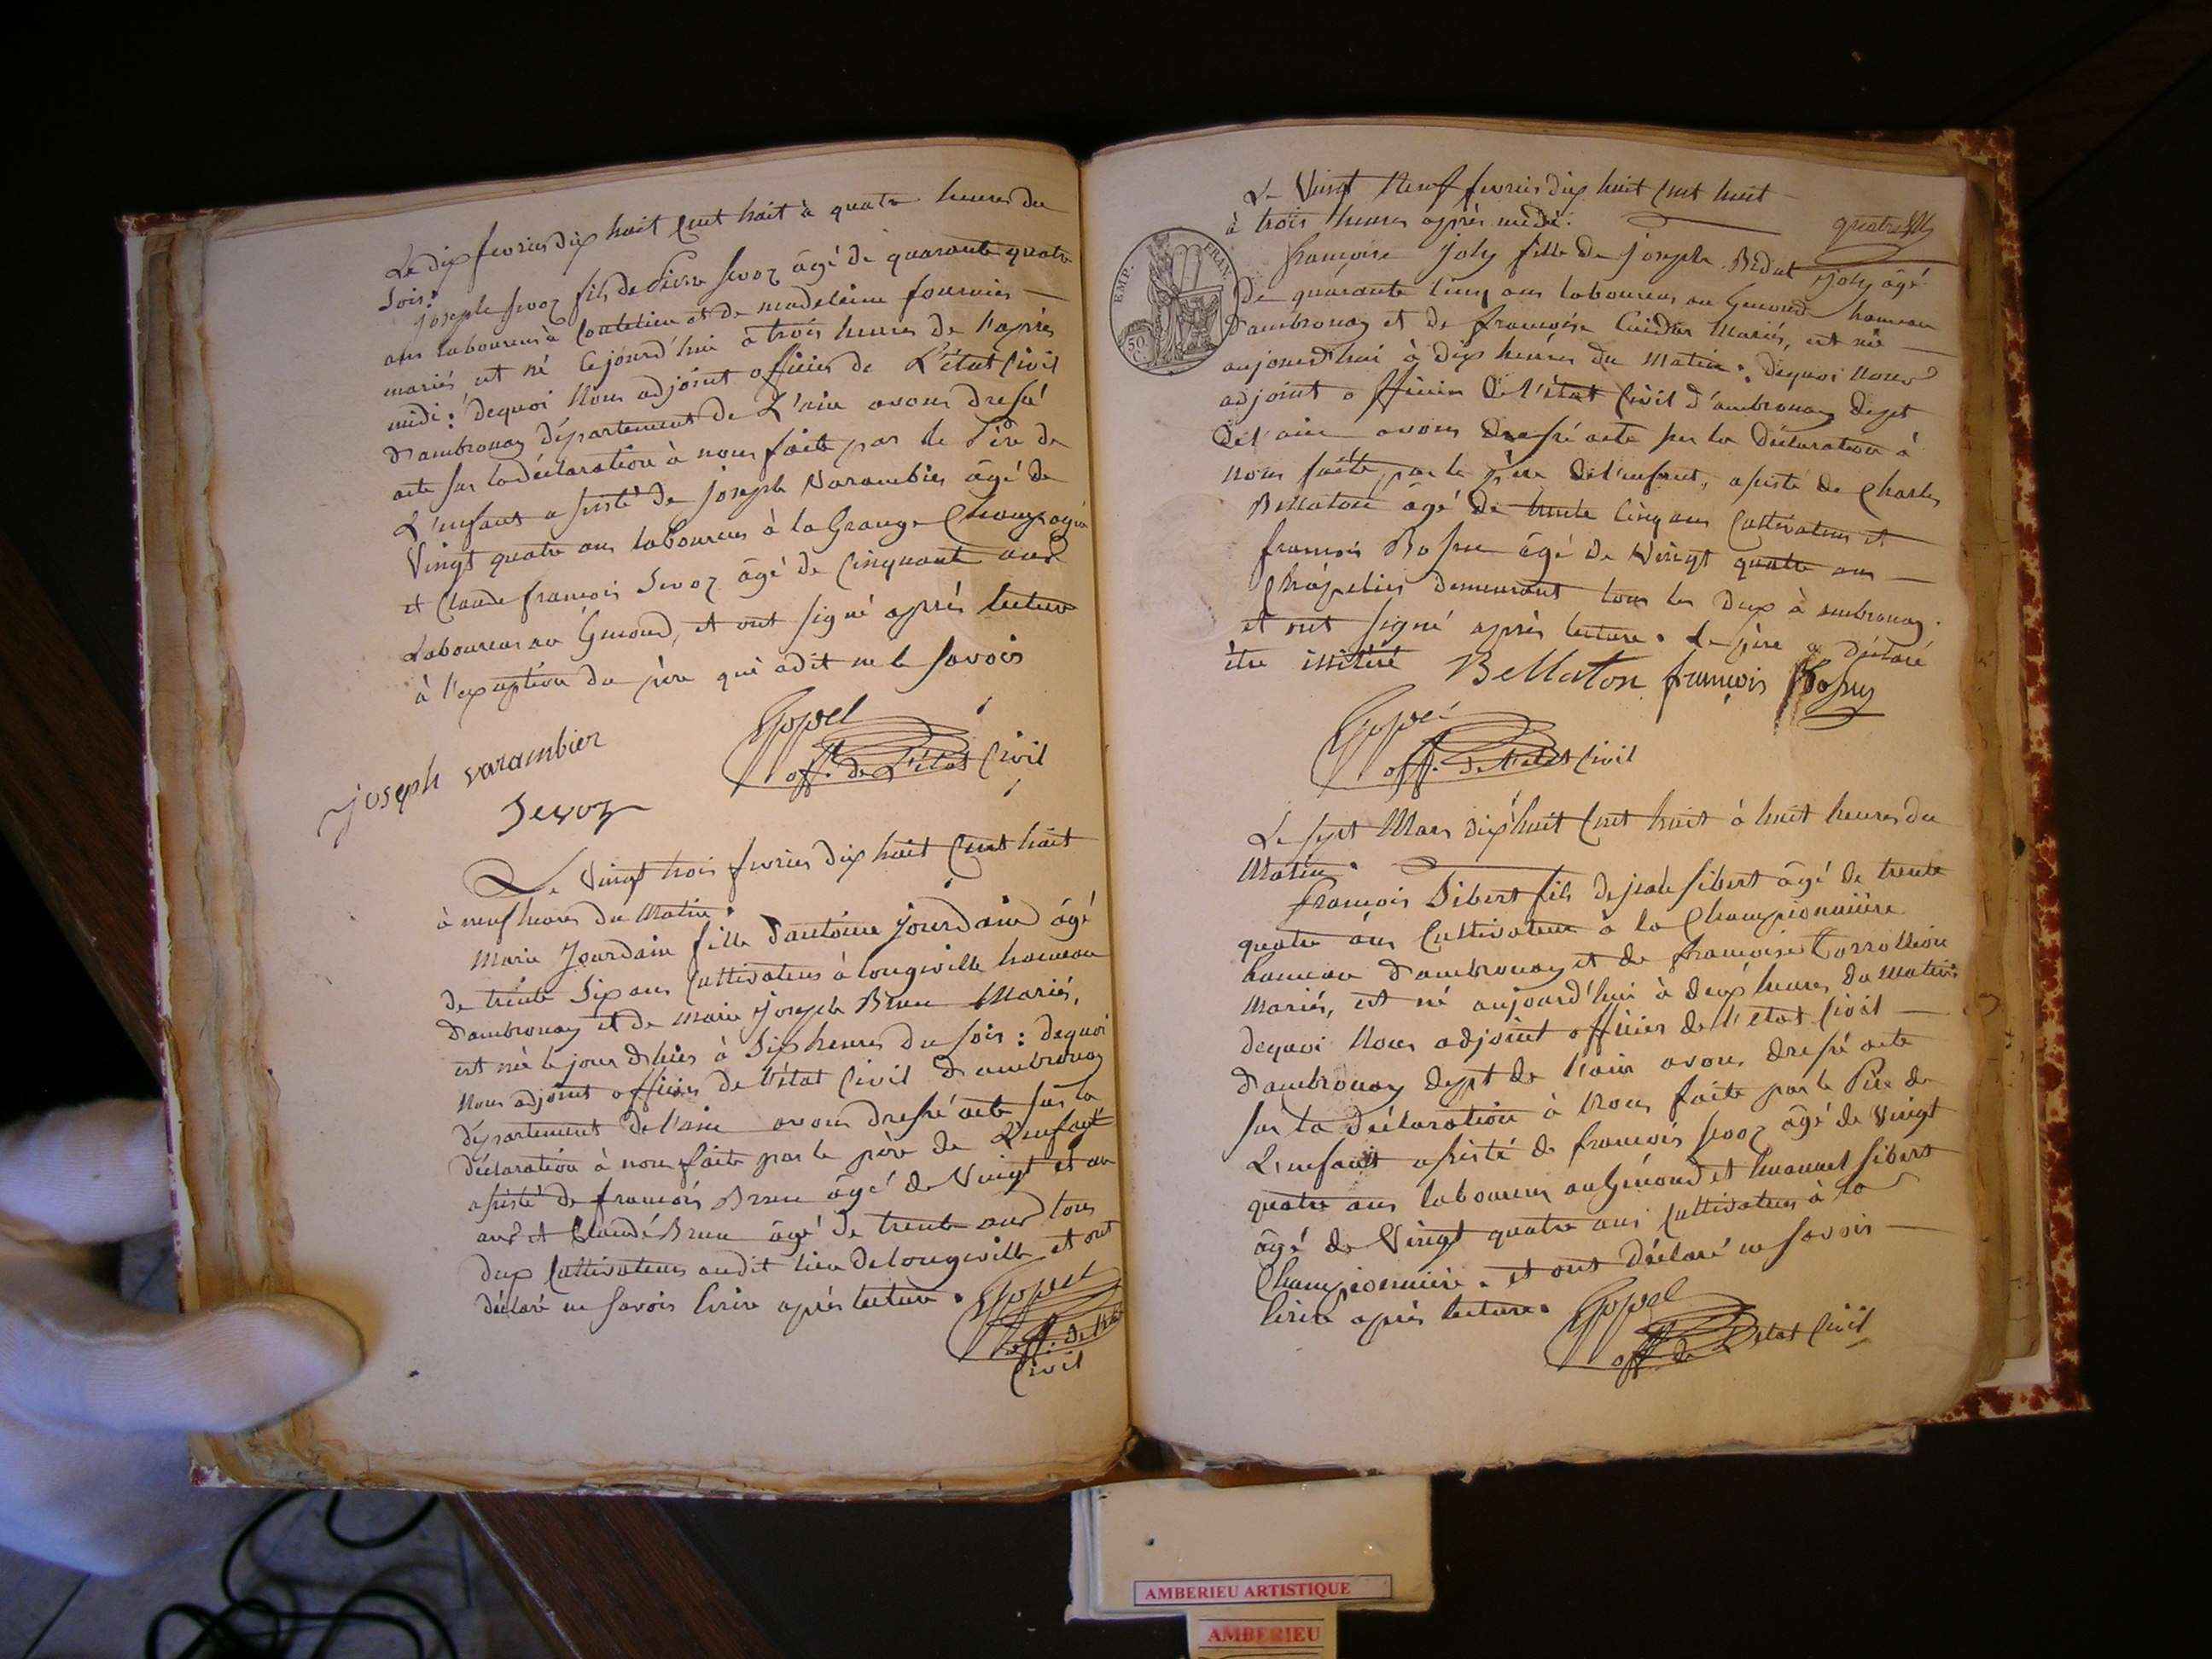 Le dix fevrier dix huit cent huit à quatre heures du
soir:
joseph sevoz fils de Pierre sevoz âgé de quarante quatre
ans laboureur à Coutelieu et de madeleine fournier
mariés est né cejourd'hui à trois heures de l'après
midi: dequoi Nous adjoint officier de L'état Civil
d'ambronay département de L'ain avons dressé
acte sur la déclaration à nous faite par le Père de
L'enfant assisté de joseph Varambier âgé de
Vingt quatre ans laboureur à la Grange Champagne
et Claude françois Sevoz âgé de Cinquante ans
Laboureur au Genoud, et ont signé après lecture
à l'exception du père qui a dit ne le savoir
joseph varambier
Sevoz
off. de L'état Civil
Le Vingt trois fevrier dix huit Cent huit
à neuf heures du Matin.
Marie Jourdain fille d'antoine Jourdain âgé
de trente Six ans Cultivateur à longeville hameau
d'ambronay et de marie joseph Brun Mariés,
est née le jour d'hier à Six heures du soir: dequoi
Nous adjoint officier de l'état Civil d'ambronay
département de l'ain avons dressé acte sur la
déclaration à nous faite par le père de L'enfant
assisté de françois Brun âgé de Vingt et un
ans et Claude Brun âgé de trente ans tous
deux Cultivateurs audit lieu de longeville et ont
déclaré ne savoir Ecrire après lecture.
off. de l'état
Civil
Le Vingt Neuf fevrier dix huit Cent huit
à trois heures après midi.
quatre
EMP. FRAN.
50 C.
françoise joly fille de joseph Bedat joly âgé
de quarante Cinq ans laboureur au Genoud hameau
d'ambronay et de françoise Mariés, est née
aujourd'hui à dix heures du Matin: dequoi Nous
adjoint officier de l'état Civil d'ambronay dept
de l'ain avons dressé acte sur la déclaration à
Nous faite par le père de l'enfant, assisté de Charles
Bellaton âgé de trente Cinq ans Cultivateur et
françois âgé de Vingt quatre ans
Chapelier demeurant tous les deux à ambronay.
et ont signé après lecture. Le père a déclaré
être illitéré Bellaton françois
off. de l'état Civil
Le sept Mars dix huit Cent huit à huit heures du
Matin.
françois Sibert fils de jean sibert âgé de trente
quatre ans Cultivateur à la Championnière
hameau d'ambronay et de françoise
Mariés, est né aujourd'hui à deux heures du Matin:
dequoi Nous adjoint officier de l'état Civil
d'ambronay dept de l'ain avons dressé acte
sur la déclaration à Nous faite par le Père de
L'enfant assisté de françois sevoz âgé de Vingt
quatre ans laboureur au Genoud et Emanuel sibert
âgé de Vingt quatre ans Cultivateur à la
Championnière. et ont déclaré ne savoir
Ecrire après lecture.
off. de L'état Civil
AMBERIEU ARTISTIQUE
AMBERIEU